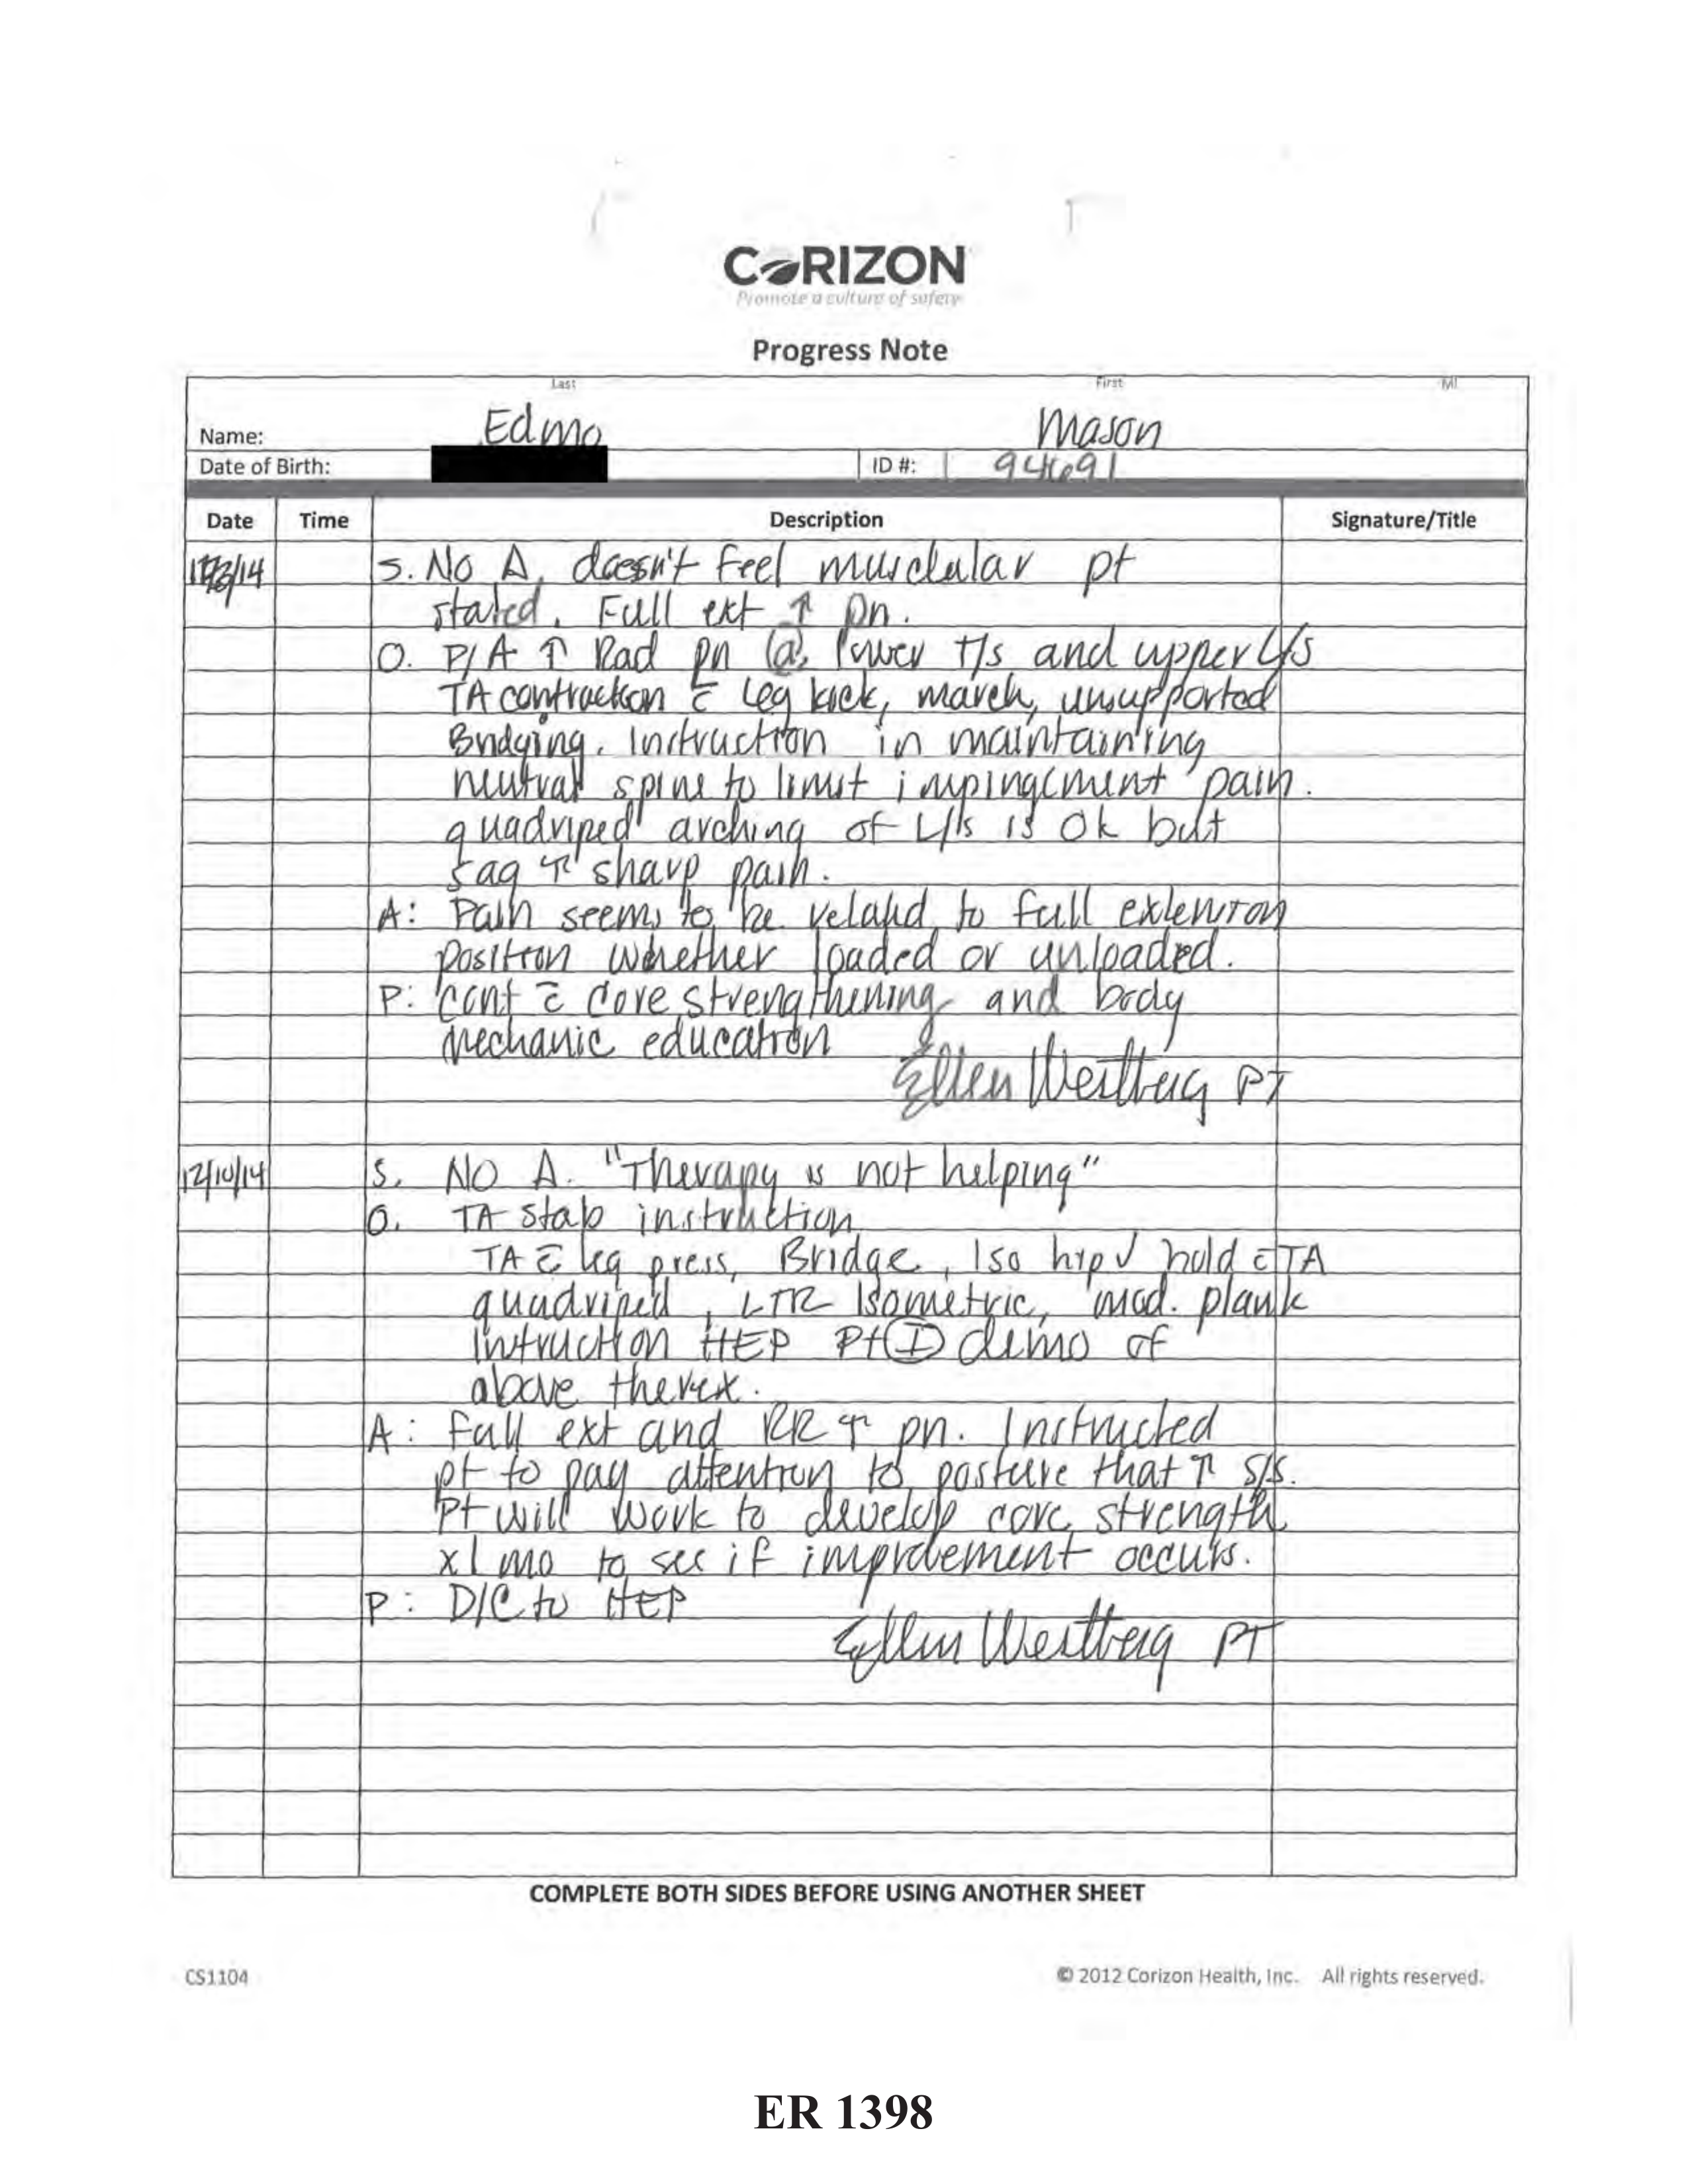 CORIZON
Promote a culture of safety
Progress Note
Last First MI
Name: Edmo Mason
Date of Birth: ID #: 94691
Date Time Description Signature/Title
/14 S. No Δ, doesn't feel musclular pt
stated. Full ext ↑ pn.
O. P/A ↑ Rad pn @ lower T/s and upper L/s
TA contraction c̄ leg kick, march, unsupported
Bridging. Instruction in maintaining
neutral spine to limit impingement pain.
quadriped arching of L/s is ok but
sag ↑ sharp pain.
A: Pain seems to be related to full extension
position whether loaded or unloaded.
P: cont c̄ core strengthening and body
mechanic education
Ellen Westberg PT
12/10/14 S. No Δ. "Therapy is not helping"
O. TA stab instruction
TA c̄ leg press, Bridge, Iso hip hold c̄ TA
quadriped, LTR Isometric, mod. plank
Intruction HEP Pt Ⓘ demo of
above therex.
A: Full ext and RR ↑ pn. Instructed
pt to pay attention to posture that ↑ s/s.
Pt will work to develop core strength
x 1 mo to see if improvement occurs.
P: D/C to HEP
Ellen Westberg PT
COMPLETE BOTH SIDES BEFORE USING ANOTHER SHEET
CS1104 © 2012 Corizon Health, Inc. All rights reserved.
ER 1398